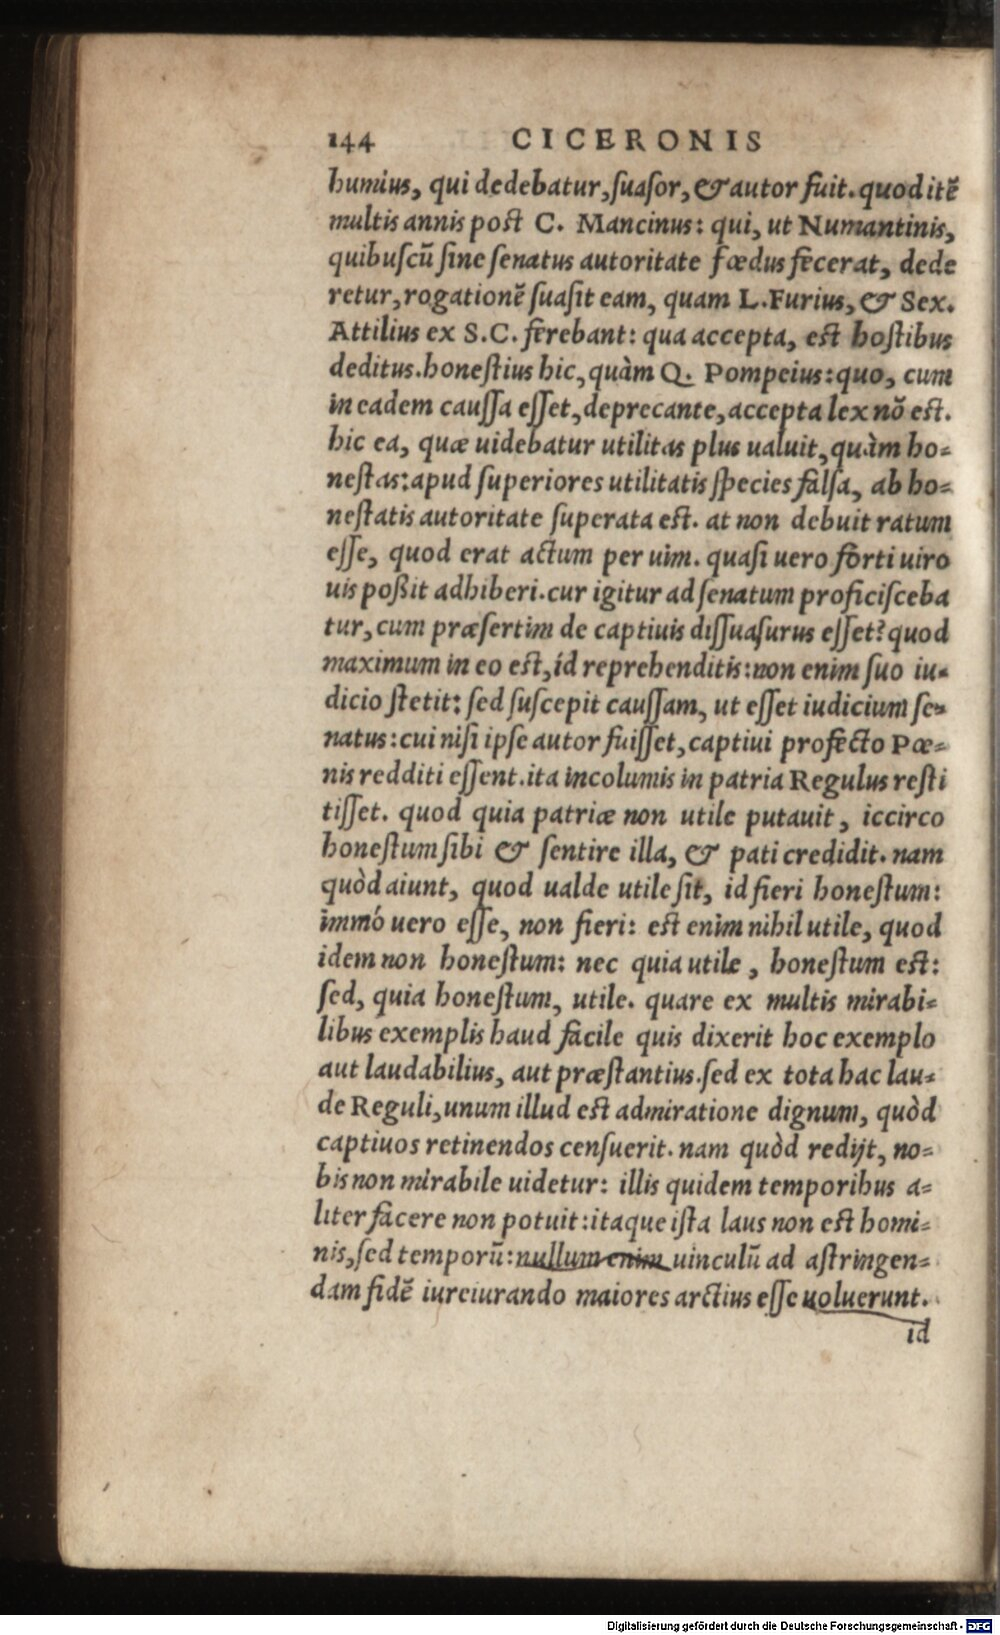 144 CICERONIS
humius, qui dedebatur, ſuaſor, & autor fuit. quod itē
multis annis poſt C. Mancinus: qui, ut Numantinis,
quibuſcū ſine ſenatus autoritate fœdus fecerat, dede
retur, rogationē ſuaſit eam, quam L. Furius, & Sex.
Attilius ex S.C. ferebant: qua accepta, eſt hoſtibus
deditus. honeſtius hic, quàm Q. Pompeius: quo, cum
in eadem cauſſa eſſet, deprecante, accepta lex nō eſt.
hic ea, quæ uidebatur utilitas plus ualuit, quàm ho-
neſtas: apud ſuperiores utilitatis ſpecies falſa, ab ho-
neſtatis autoritate ſuperata eſt. at non debuit ratum
eſſe, quod erat actum per uim. quaſi uero forti uiro
uis poßit adhiberi. cur igitur ad ſenatum proficiſceba
tur, cum præſertim de captiuis diſſuaſurus eſſet? quod
maximum in eo eſt, id reprehenditis: non enim ſuo iu-
dicio ſtetit: ſed ſuſcepit cauſſam, ut eſſet iudicium ſe-
natus: cui niſi ipſe autor fuiſſet, captiui profecto Pœ-
nis redditi eſſent. ita incolumis in patria Regulus reſti
tiſſet. quod quia patriæ non utile putauit, iccirco
honeſtum ſibi & ſentire illa, & pati credidit. nam
quòd aiunt, quod ualde utile ſit, id fieri honeſtum:
immó uero eſſe, non fieri: eſt enim nihil utile, quod
idem non honeſtum: nec quia utile, honeſtum eſt:
ſed, quia honeſtum, utile. quare ex multis mirabi-
libus exemplis haud facile quis dixerit hoc exemplo
aut laudabilius, aut præſtantius. ſed ex tota hac lau-
de Reguli, unum illud eſt admiratione dignum, quòd
captiuos retinendos cenſuerit. nam quòd redijt, no-
bis non mirabile uidetur: illis quidem temporibus a-
liter facere non potuit: itaque iſta laus non eſt homi-
nis, ſed temporū: nullum enim uinculū ad aſtringen-
dam fidē iureiurando maiores arctius eſſe uoluerunt.
id
Digitalisierung gefördert durch die Deutsche Forschungsgemeinschaft - DFG